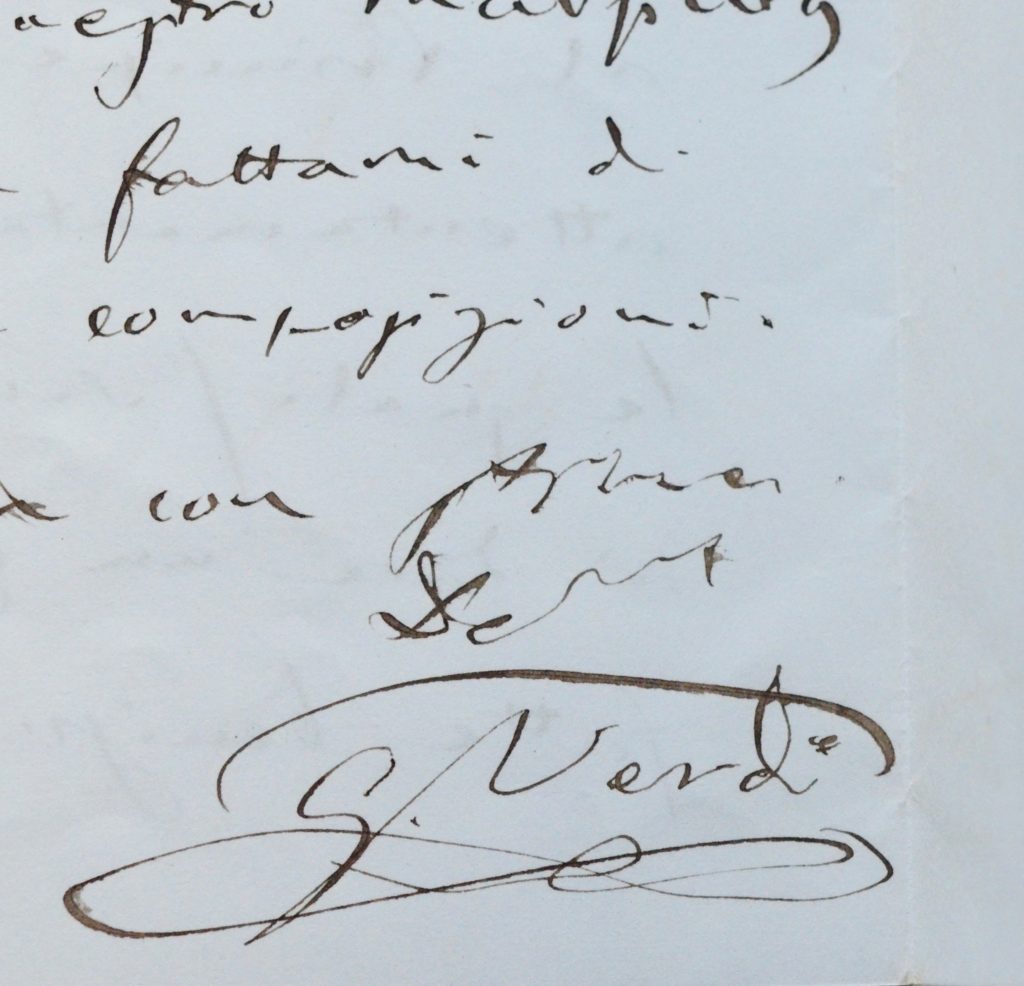 fattami di
composizioni.
con stima
Dev
G. Verdi